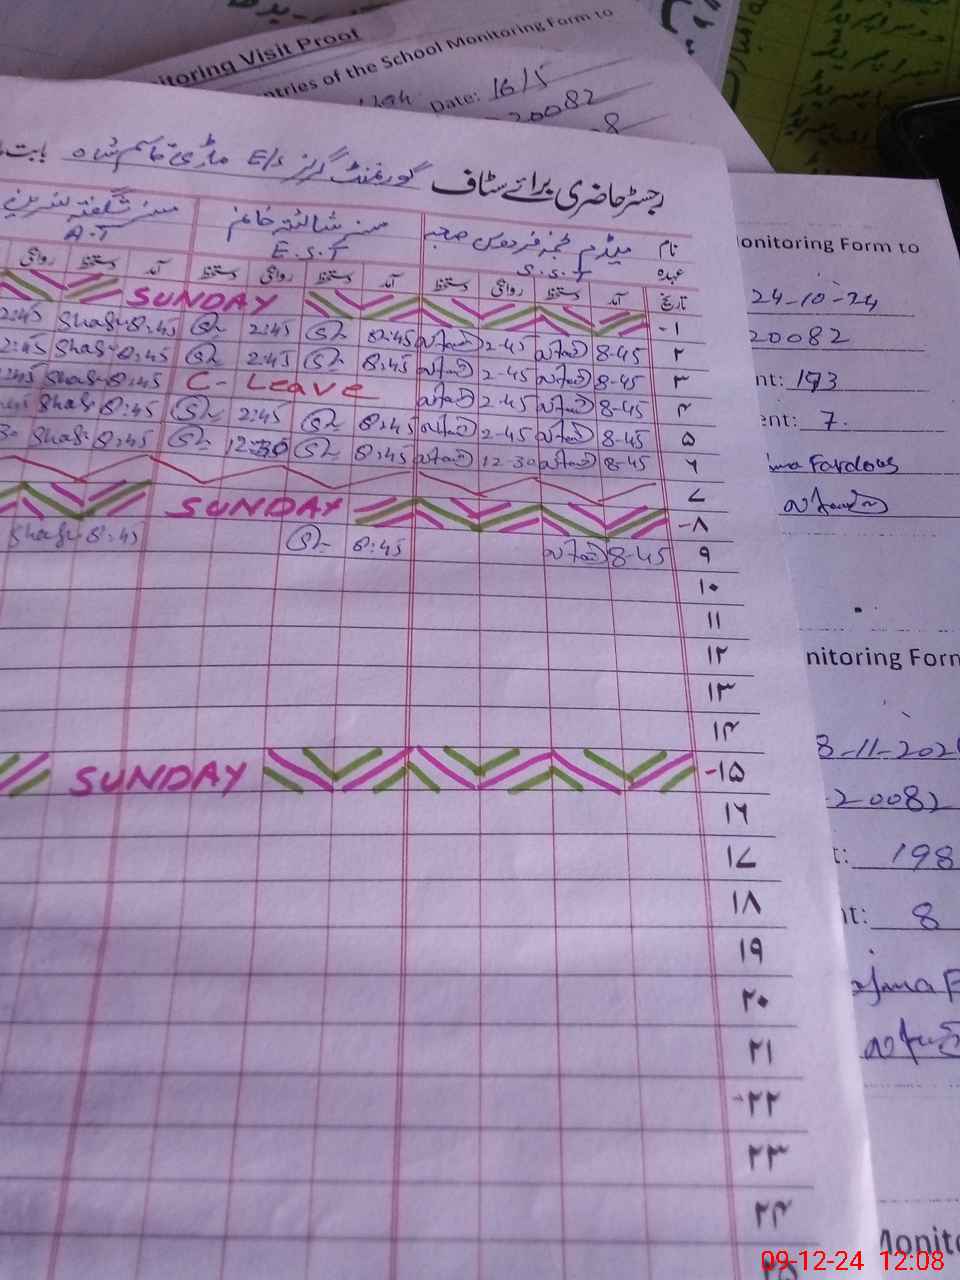 itoring Visit Proof
ntries of the School Monitoring Form to
Date: 16/5
20082
8
رجسٹر حاضری برائے سٹاف گورنمنٹ گرلز E/S ماڑی قاسم شاہ بابت
نام میڈم نجمہ فردوس صاحبہ مسز شائستہ خانم مسز شگفتہ نسرین
عہدہ S.S.T E.S.T A.T
تاریخ آمد دستخط روانگی دستخط آمد دستخط روانگی دستخط آمد دستخط روانگی
۱ SUNDAY
۲ 8-45 2-45 8:45 2:45 8:45 Shag 2:45
۳ 8-45 2-45 8:45 2:45 8:45 Shag 2:45
۴ 8-45 2-45 C- Leave 8:45 Shag 2:45
۵ 8-45 2-45 8:45 2:45 8:45 Shag
۶ 8-45 12-30 8:45 12:30 8:45 Shag 30
۷
۸ SUNDAY
۹ 8-45 8:45 8:45 Shag
۱۰
۱۱
۱۲
۱۳
۱۴
۱۵ SUNDAY
۱۶
۱۷
۱۸
۱۹
۲۰
۲۱
۲۲
۲۳
۲۴
onitoring Form to
24-10-24
20082
nt: 193
ent: 7.
ma Fardous
nitoring Form
8-11-202
20082
t: 198
nt: 8
ajma F
Monito
09-12-24 12:08